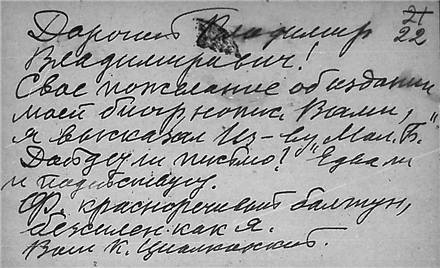 21
22
Дорогой Владимир
Владимирович!
Свое пожелание об издании
моей биографии Вами,
я высказал Из-ву Мол. Б.
Дойдут ли письмо? Едва ли
и подействую.
Ф. красноречивый болтун,
бессилен как я.
Ваш К. Циолковский.